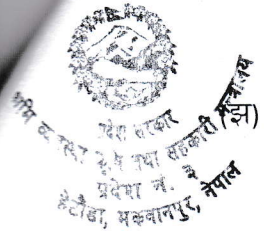 प्रदेश सरकार
भूमि व्यवस्था कृषि तथा सहकारी मन्त्रालय
(झ)
प्रदेश नं. ३
हेटौंडा, मकवानपुर, नेपाल